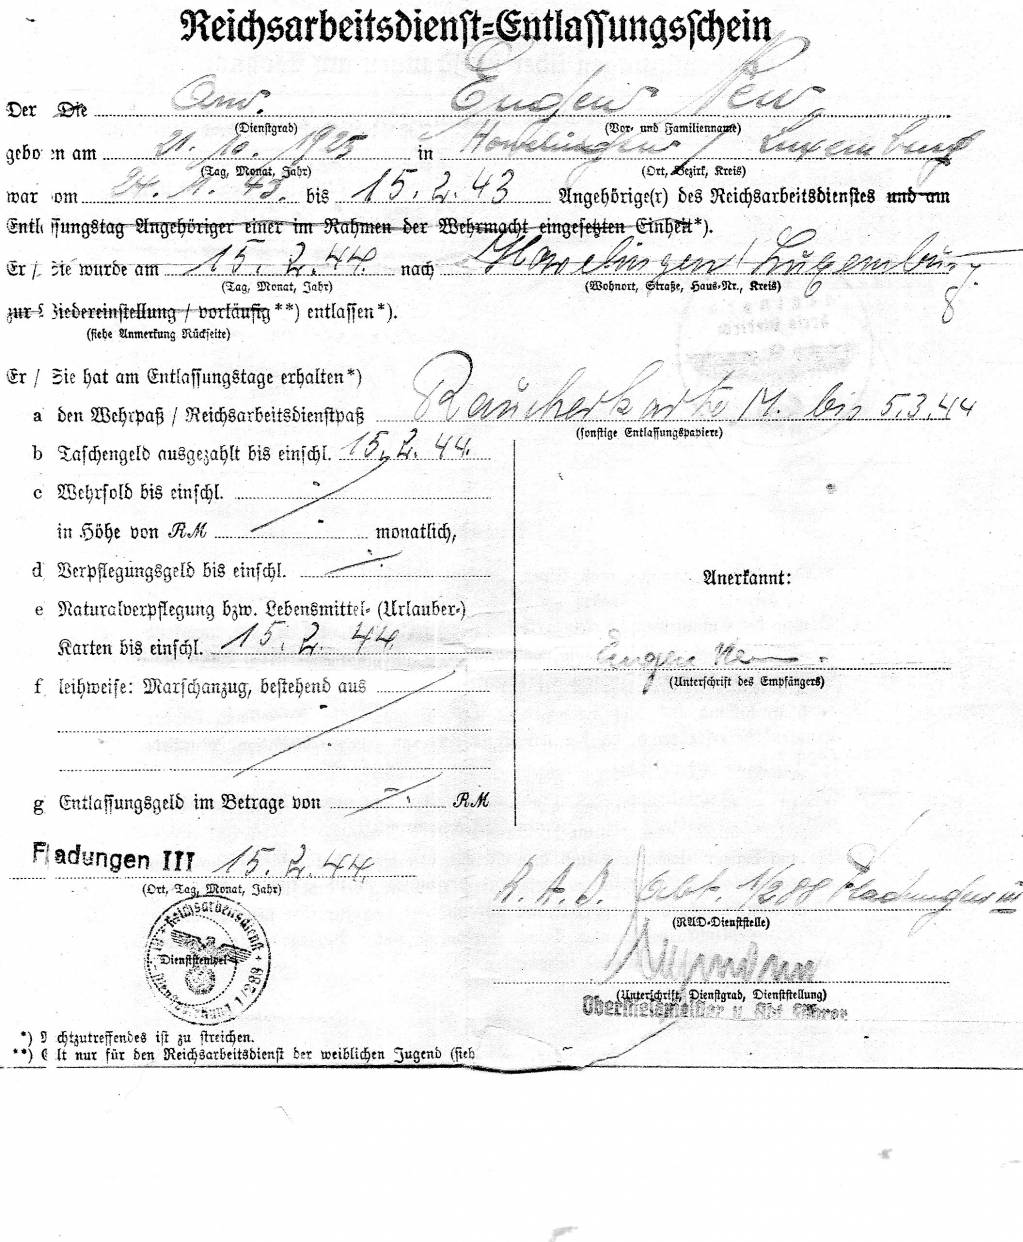 Reichsarbeitsdienst-Entlassungsschein
Der Die Eugen
(Dienstgrad) (Vor- und Familienname)
gebo en am 21. 10. 1925 in Howelingen / Luxemburg
(Tag, Monat, Jahr) (Ort, Bezirk, Kreis)
war om 24. 11. 43. bis 15. 2. 43 Angehörige(r) des Reichsarbeitsdienstes und am
Entl ssungstag Angehöriger einer im Rahmen der Wehrmacht eingesetzten Einheit*).
Er / Sie wurde am 15. 2. 44. nach Howelingen / Luxemburg
(Tag, Monat, Jahr) (Wohnort, Straße, Haus-Nr., Kreis)
zur Wiedereinstellung / vorläufig **) entlassen*).
(siehe Anmerkung Rückseite)
Er / Sie hat am Entlassungstage erhalten*)
a den Wehrpaß / Reichsarbeitsdienstpaß Raucherkarte M. bis 5.3.44
(sonstige Entlassungspapiere)
b Taschengeld ausgezahlt bis einschl. 15. 2. 44.
c Wehrsold bis einschl.
in Höhe von RM monatlich,
d Verpflegungsgeld bis einschl.
Anerkannt:
e Naturalverpflegung bzw. Lebensmittel- (Urlauber-)
Karten bis einschl. 15. 2. 44.
Eugen
(Unterschrift des Empfängers)
f leihweise: Marschanzug, bestehend aus
g Entlassungsgeld im Betrage von RM
Fladungen III 15. 2. 44.
(Ort, Tag, Monat, Jahr)
R. A. D. Abt. 1/288 Fladungen III
(RAD-Dienststelle)
Reichsarbeitsdienst
Dienststempel
1/288
(Unterschrift, Dienstgrad, Dienststellung)
Oberfeldmeister u. Abt. Führer
*) N chtzutreffendes ist zu streichen.
**) G lt nur für den Reichsarbeitsdienst der weiblichen Jugend (sieh